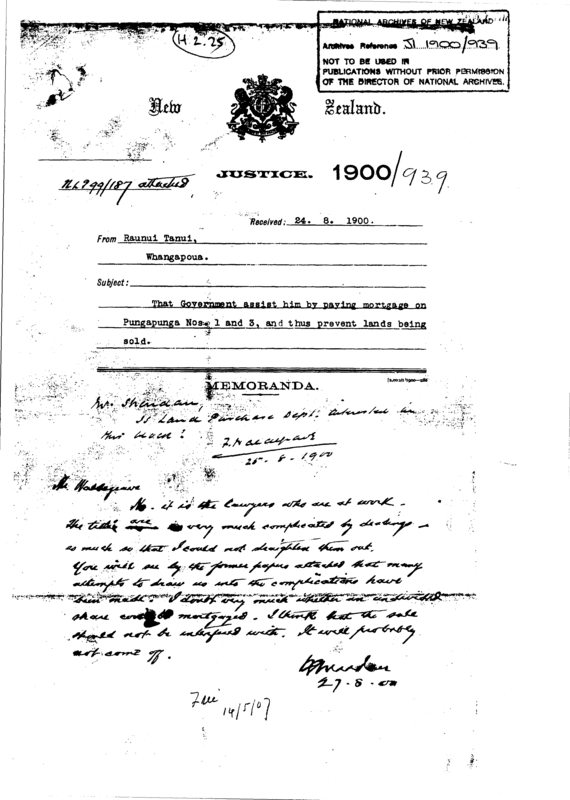 H 2.25
NATIONAL ARCHIVES OF NEW ZEALAND
Archives Reference J1 1900/939
NOT TO BE USED IN
PUBLICATIONS WITHOUT PRIOR PERMISSION
OF THE DIRECTOR OF NATIONAL ARCHIVES.
New Zealand.
NLP 99/187 attached
JUSTICE. 1900/939
Received: 24. 8. 1900.
From Raunui Tanui,
Whangapoua.
Subject:
That Government assist him by paying mortgage on
Pungapunga Nos. 1 and 3, and thus prevent lands being
sold.
MEMORANDA.
Mr. Sheridan,
Is Land Purchase Dept. interested in
this block?
25-8-1900
Mr Waldegrave
No. it is the lawyers who are at work.
The titles are very much complicated by dealings –
so much so that I could not straighten them out.
You will see by the former papers attached that many
attempts to draw us into the complications have
been made. I doubt very much whether an undivided
share could be mortgaged. I think that the sale
should not be interfered with. It will probably
not come off.
27.8.00
File
14/5/07